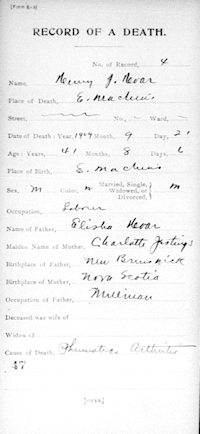 [Form B-9]
RECORD OF A DEATH.
No. of Record, 4
Name, Henry J. Hoar
Place of Death, E. Machias
Street, No. Ward,
Date of Death: Year, 1909 Month, 9 Day, 21
Age: Years, 41 Months, 8 Days, 6
Place of Birth, E. Machias
Sex, M Color, W Married, Single, Widowed, or Divorced, } M
Occupation, Labour
Name of Father, Elisha Hoar
Maiden Name of Mother, Charlotte
Birthplace of Father, New Brunswick
Birthplace of Mother, Nova Scotia
Occupation of Father, Millman
Deceased was wife of
Widow of
Cause of Death, Rheumatic Arthritis
47
[OVER.]